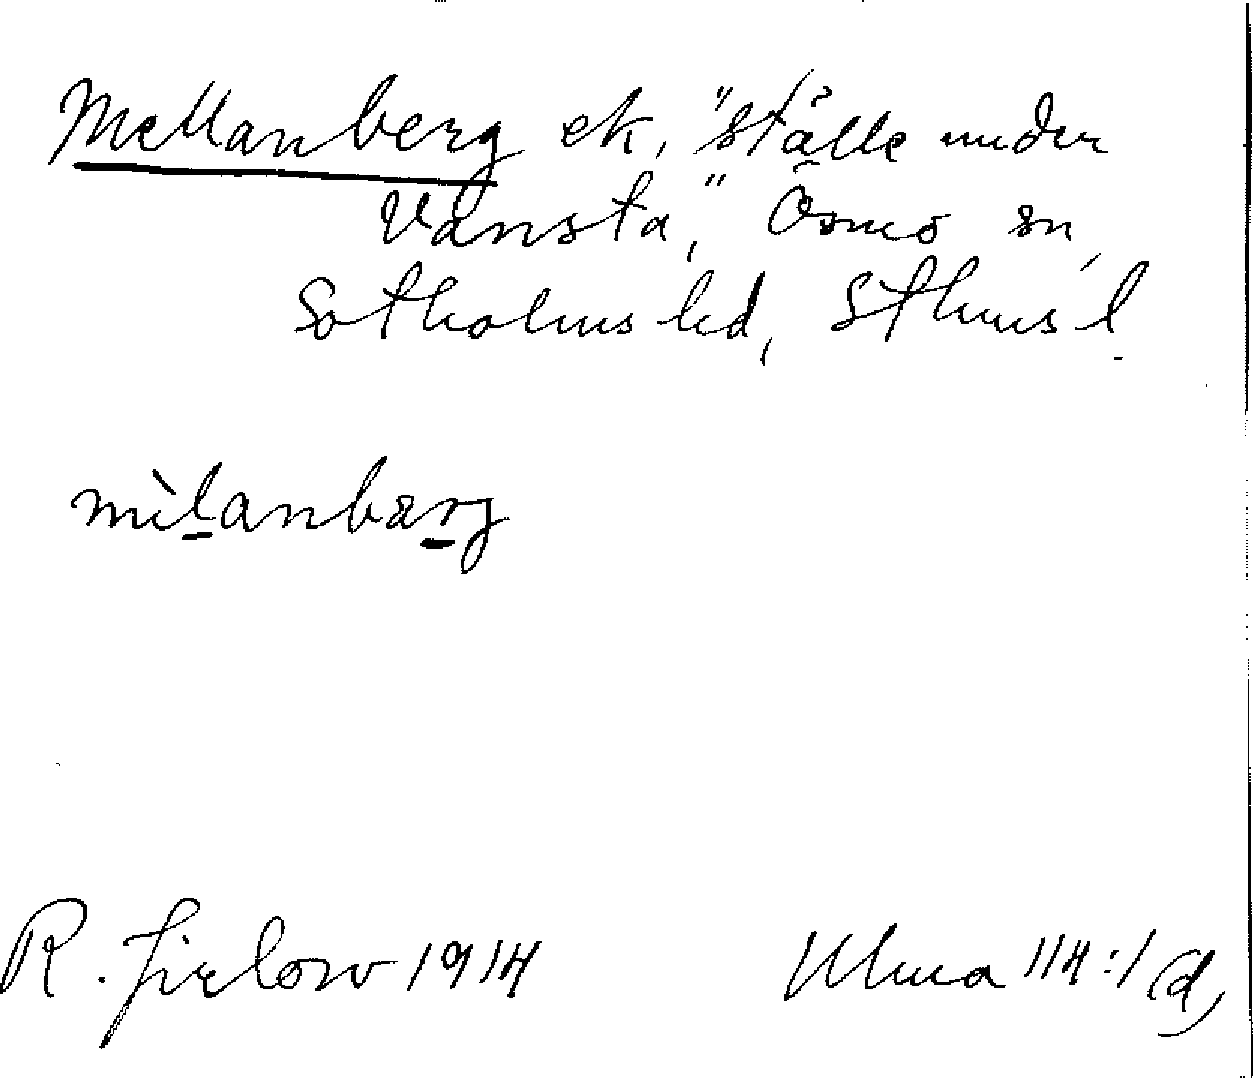 Mellanberg ek, "ställe under
Vansta," Ösmo sn,
Sotholms hd, Sthms l.
mìlanbærg
R. Jirlow 1914
Ulma 114:1(d)